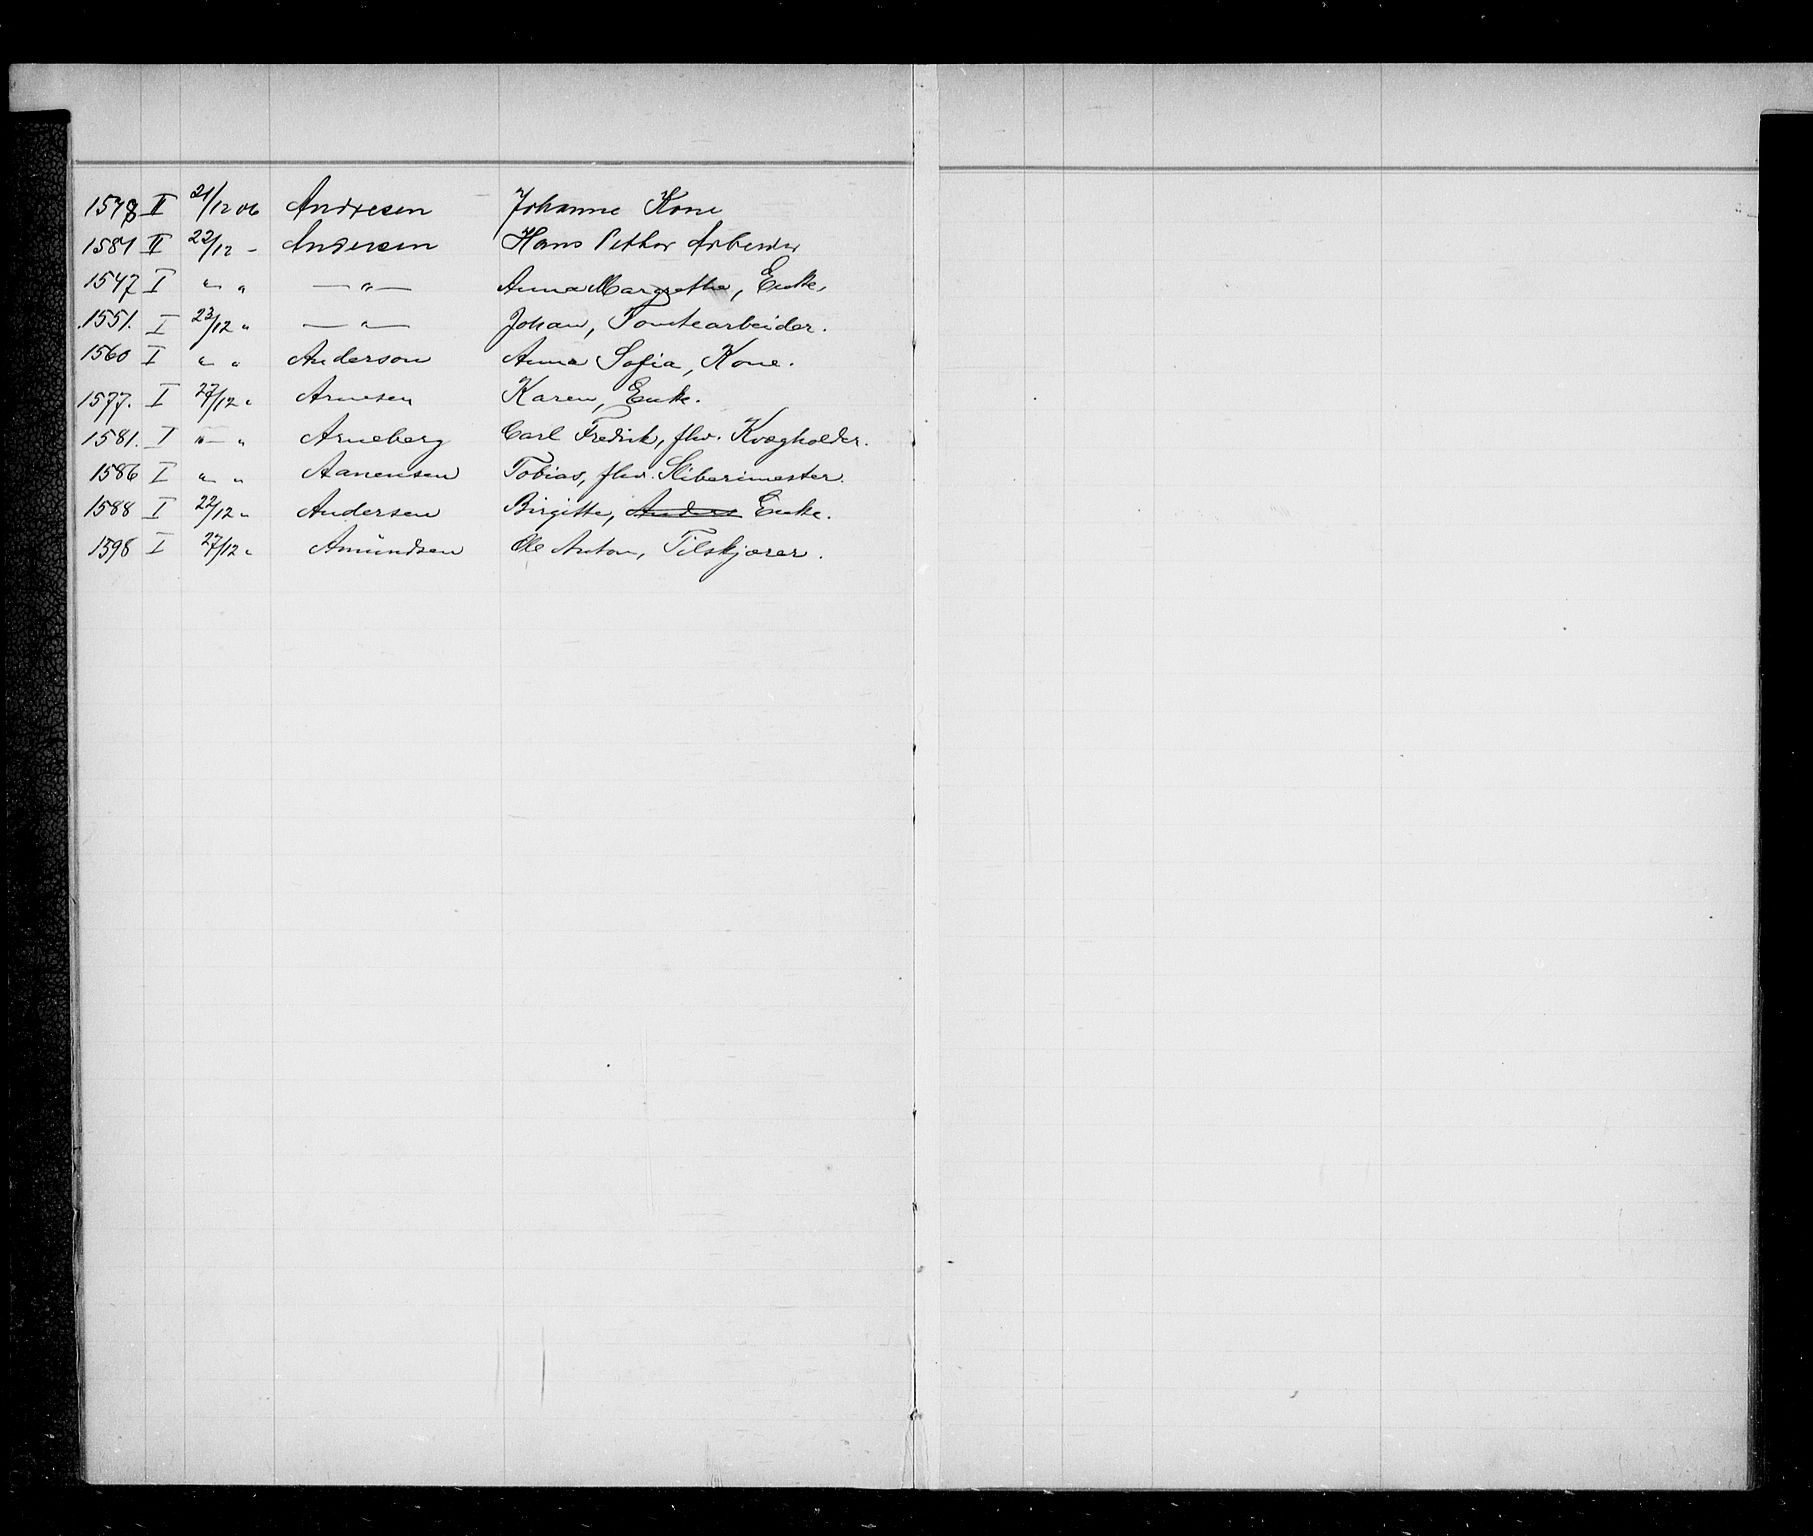 1548 II 21/12 06 Andresen Johanne Kone
1581 II 22/12 - Andersen Hans Petter Arbeider
1547 I " " — " — Anna Margrethe, Enke.
1551. I 23/12 " — " — Johan, Tomtearbeider.
1560 I " " Anderson Anna Sofia, Kone.
1577. I 27/12 " Arnesen Karen, Enke.
1581. I " " Arneberg Carl Fredrik, fhv. Kvægholder.
1586 I " " Aanensen Tobias, fhv. Sliberimester.
1588 I 22/12 " Andersen Birgitte, Anders Enke.
1598 I 27/12 " Amundsen Ole Anton, Tilskjærer.